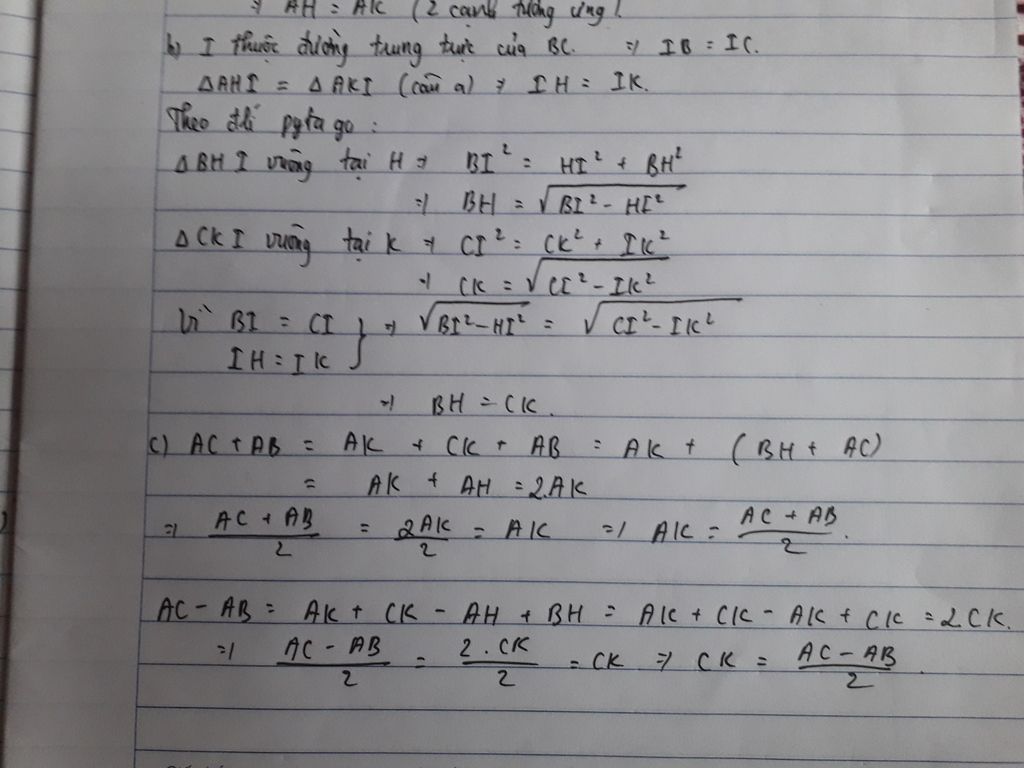 ⇒ AH = AK (2 cạnh tương ứng)
b) I thuộc đường trung trực của BC. ⇒ IB = IC.
ΔAHI = ΔAKI (câu a) ⇒ IH = IK.
Theo đlí pytago :
ΔBHI vuông tại H ⇒ BI² = HI² + BH²
⇒ BH = √(BI² - HI²)
ΔCKI vuông tại K ⇒ CI² = CK² + IK²
⇒ CK = √(CI² - IK²)
Vì BI = CI } ⇒ √(BI² - HI²) = √(CI² - IK²)
IH = IK
⇒ BH = CK.
c) AC + AB = AK + CK + AB = AK + (BH + AC)
= AK + AH = 2AK
⇒ (AC + AB)/2 = 2AK/2 = AK ⇒ AK = (AC + AB)/2.
AC - AB = AK + CK - AH + BH = AK + CK - AK + CK = 2CK.
⇒ (AC - AB)/2 = (2 . CK)/2 = CK ⇒ CK = (AC - AB)/2.